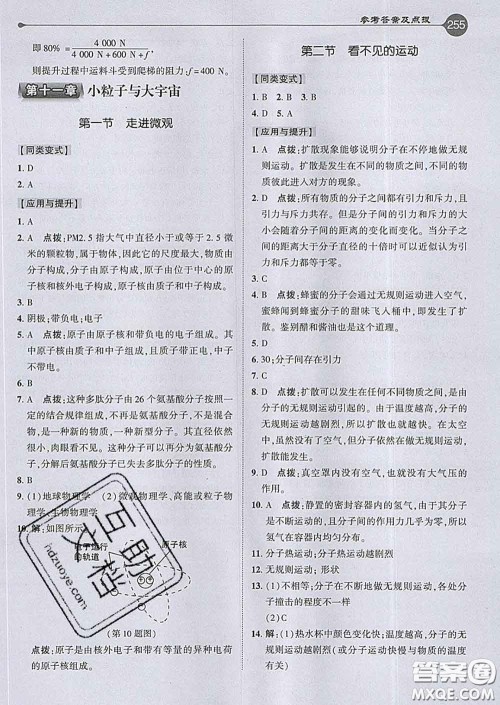 参考答案及点拨 255
即 80% = 4 000 N / (4 000 N + 600 N + f)
则提升过程中运料斗受到爬梯的阻力:f=400 N。
第十一章 小粒子与大宇宙
第一节 走进微观
【同类变式】
1. D
2. A
【应用与提升】
1. A
2. A 点拨:PM2.5指大气中直径小于或等于2.5微
米的颗粒物,属于物体,因此它的尺度最大,物质由
分子构成,分子由原子构成,原子由位于中心的原子
核和核外电子构成,原子核由质子和中子组成。
3. B
4. 阴极;带负电;电子
5. A 点拨:原子由原子核和带负电的电子组成。其
中原子核由质子和中子组成,且质子带正电,中子不
带电。
6. B
7. B 点拨:这种多肽分子由26个氨基酸分子按照一
定的结合规律组成,不再是氨基酸分子,不是氨基
酸,是一种新的物质,一种新型分子。其分子直径依
然很小,肉眼看不见。因此分为氨基酸分子时不是
8. B
9. (1)地球物理学 (2)微观物理学、高能或粒子物
理学、生物物理学
10. 解:如图所示
电子运行
的轨道
原子核
(第10题图)
点拨:原子是由带有等量的异种电荷
的原子核组成。
第二节 看不见的运动
【同类变式】
1. B 2. B 3. B 4. A
【应用与提升】
1. A 点拨:扩散现象能够说明分子在不停地做无规
则运动。扩散是发生在不同的物质之间的,是物质
之间进入对方的现象。
2. A 点拨:所有物质的分子之间都有引力和斥力,当
分子间的距离很小时,引力和斥力同时存在,它们的
大小会随着分子间的距离的变化而变化。当分子之
间的距离大于分子直径的十倍时可以近似认为引力
和斥力消失。
3. C
4. B 点拨:蜂蜜的分子会通过无规则运动进入空气,
蜜蜂闻到空气中的甜味飞入桶中,即发生了扩散现
象。鉴别醋和酱油也是这个道理。
5. D
6. 30;分子间存在引力
7. C
8. B 点拨:扩散可以发生在任何不同物质之间,是由
分子的无规则运动引起的。由于温度越高,分子的
无规则运动越剧烈,所以温度越高,扩散越快。在太
空中,仍然会发生扩散现象。
9. D 点拨:真空罩内没有空气,也就没有大气压的
作用。
10. A 点拨:静置的密封容器内的氢气,由于其分子
是不断运动的,且因其分子间的作用力几乎为零,所
以氢气在容器内均匀分布。
11. 分子热运动;分子热运动越剧烈
12. 无规则运动;形状
13. (1)不相等;分子在不断地做无规则运动
(2)C
14. 解:(1)热水杯中颜色变化快;温度越高,分子的无
规则运动越剧烈(或分子运动快慢与物质的温度
有关)
互助文档
hdzuoye.com
答案圈
MXQE.COM